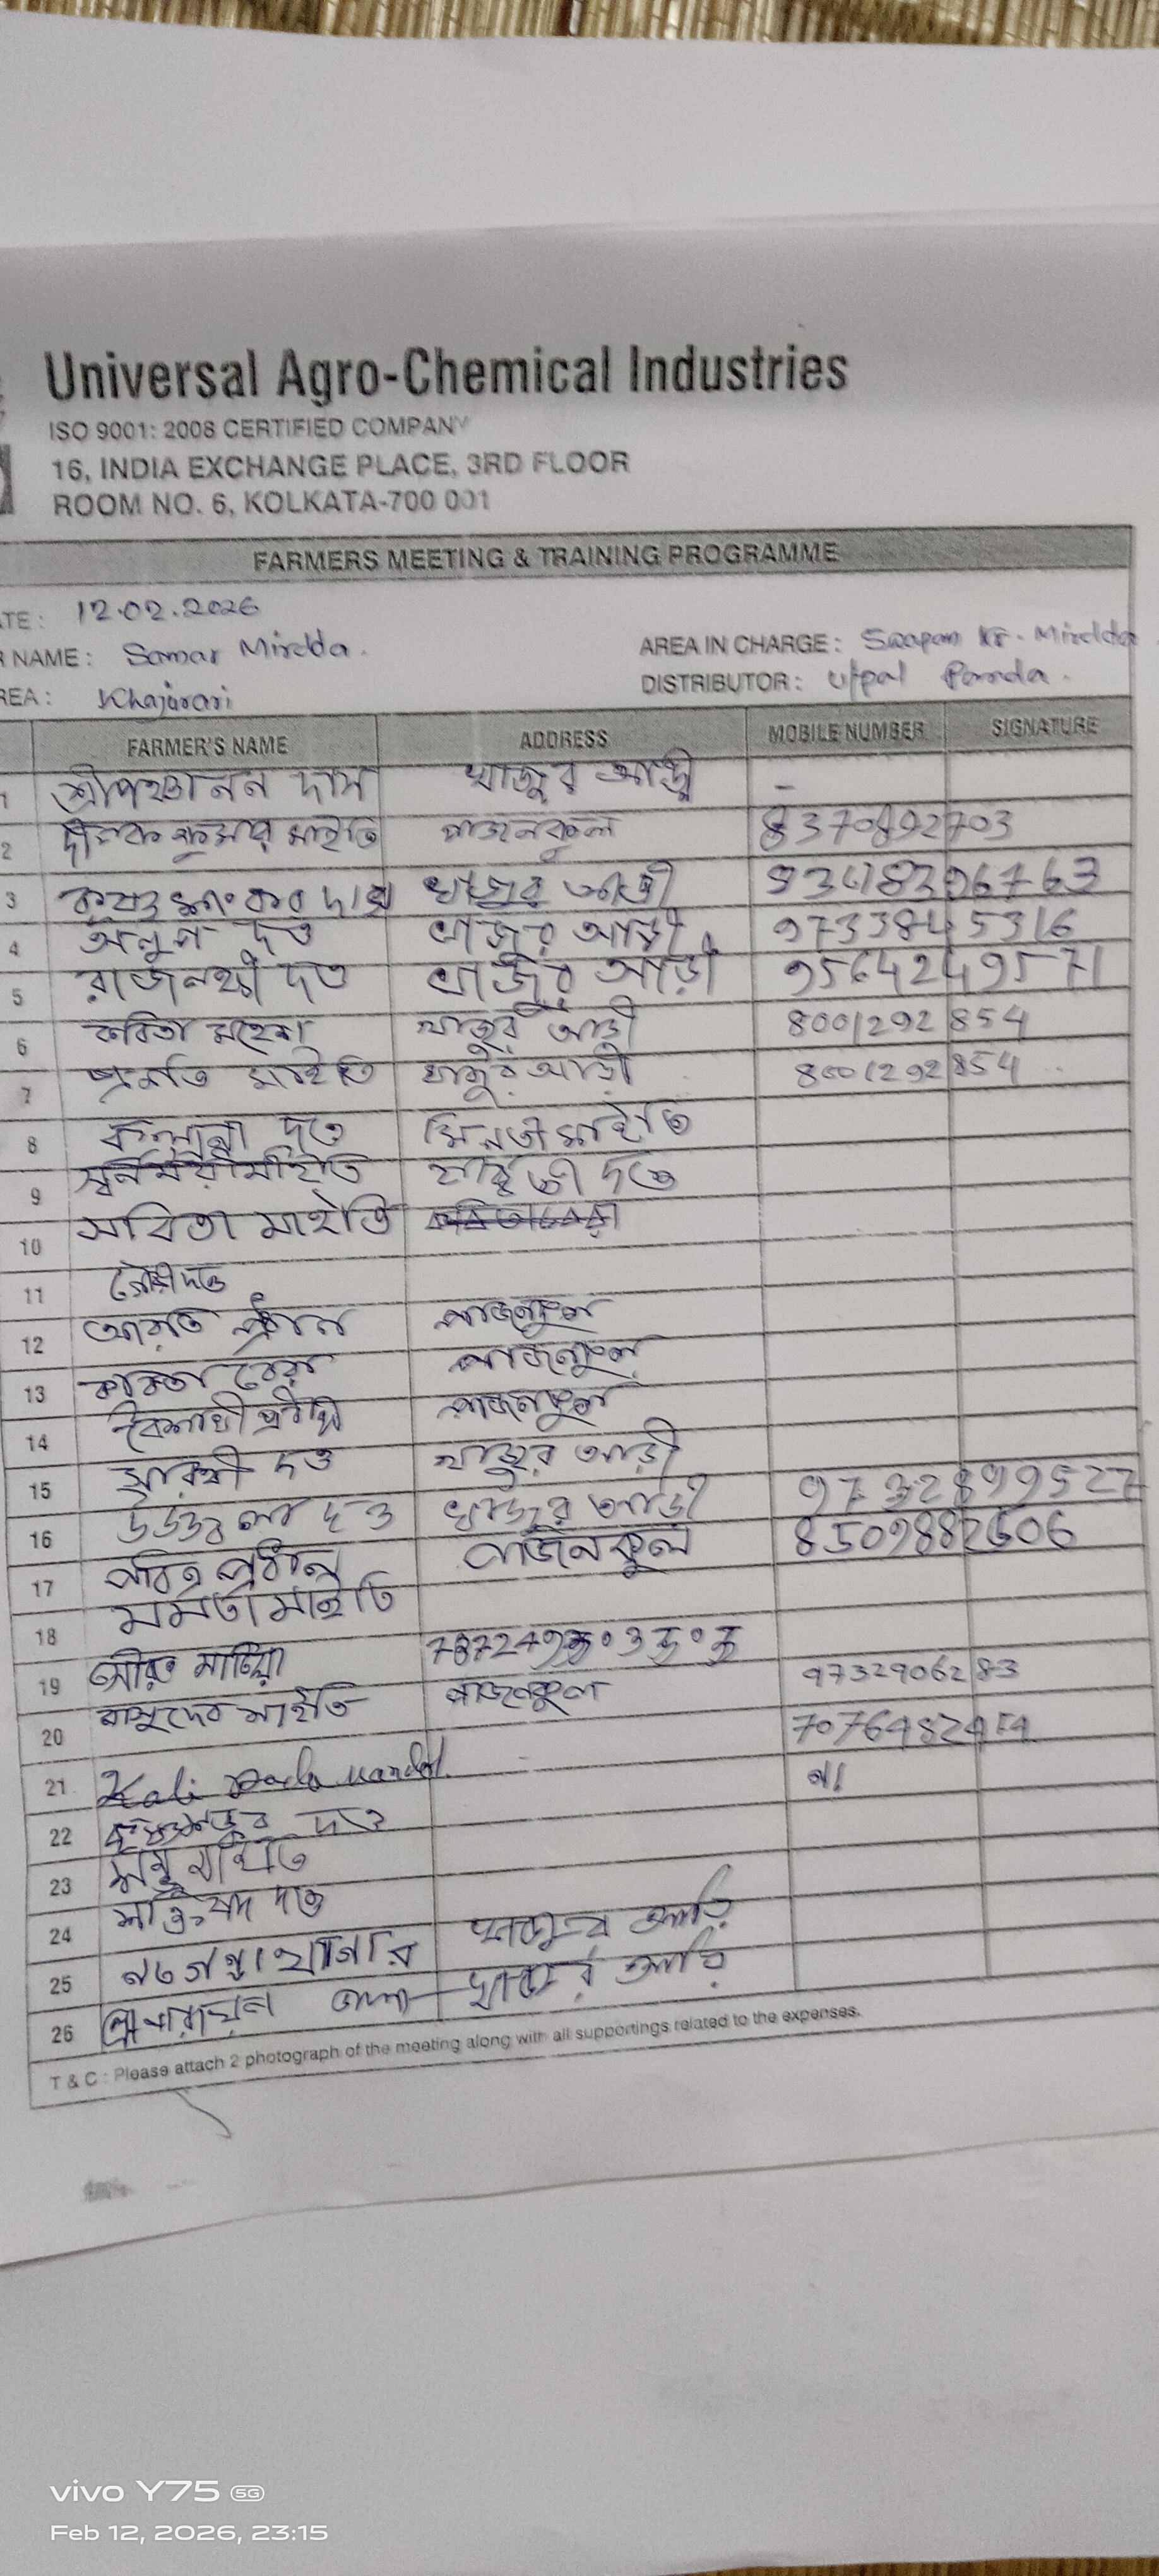 Universal Agro-Chemical Industries
ISO 9001: 2008 CERTIFIED COMPANY
16, INDIA EXCHANGE PLACE, 3RD FLOOR
ROOM NO. 6, KOLKATA-700 001
FARMERS MEETING & TRAINING PROGRAMME
ATE : 12.02.2026
R NAME : Samar Mirdda. AREA IN CHARGE : Swapan Kr. Mirdda
REA : Khajurari DISTRIBUTOR : Utpal Panda.
FARMER'S NAME ADDRESS MOBILE NUMBER SIGNATURE
1 শ্রীপঞ্চানন দাস খাজুর আড়ী -
2 দীপক কুমার মাইতি পাজনকুল 8370892703
3 খাজুর আড়ী
4 দত্ত খাজুর আড়ী 9733845316
5 রাজলক্ষ্মী দত্ত খাজুর আড়ী 9564249571
6 কবিতা খাজুর আড়ী 8001292854
7 প্রনতি মাইতি খাজুর আড়ী 8001292854
8 কল্পনা দত্ত মিনতী মাইতি
9 স্বর্নময়ী মাইতি দত্ত
10 সবিতা মাইতি
11 গৌরী দত্ত
12 আরতি প্রধান পাজনকুল
13 বেরা পাজনকুল
14 বৈশাখী প্রধান পাজনকুল
15 দত্ত খাজুর আড়ী
16 উজ্জ্বলা দত্ত খাজুর আড়ী 9732899527
17 পবিত্র প্রধান পাজনকুল 8509882606
18 মমতা মাইতি
19
20 বাসুদেব মাইতি পাজনকুল 9732906283
21 Kali Pada
22 দত্ত না
23
24 শক্তিপদ দত্ত
25 খাজুর আড়ি
26 খাজুর আড়ি
T & C : Please attach 2 photograph of the meeting along with all supportings related to the expenses.
vivo Y75 5G
Feb 12, 2026, 23:15